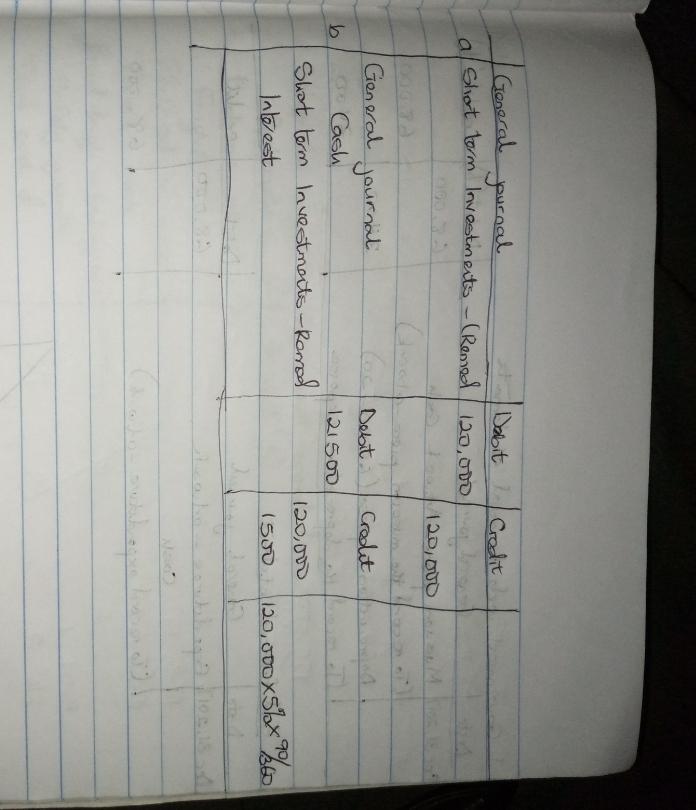 General journal Debit Credit
a) Short term Investments - (Remed 120,000
120,000
General journal Debit Credit
b Cash 121500
Short term Investments - Remed 120,000
Interest 1500 120,000 x 5% x 90/360